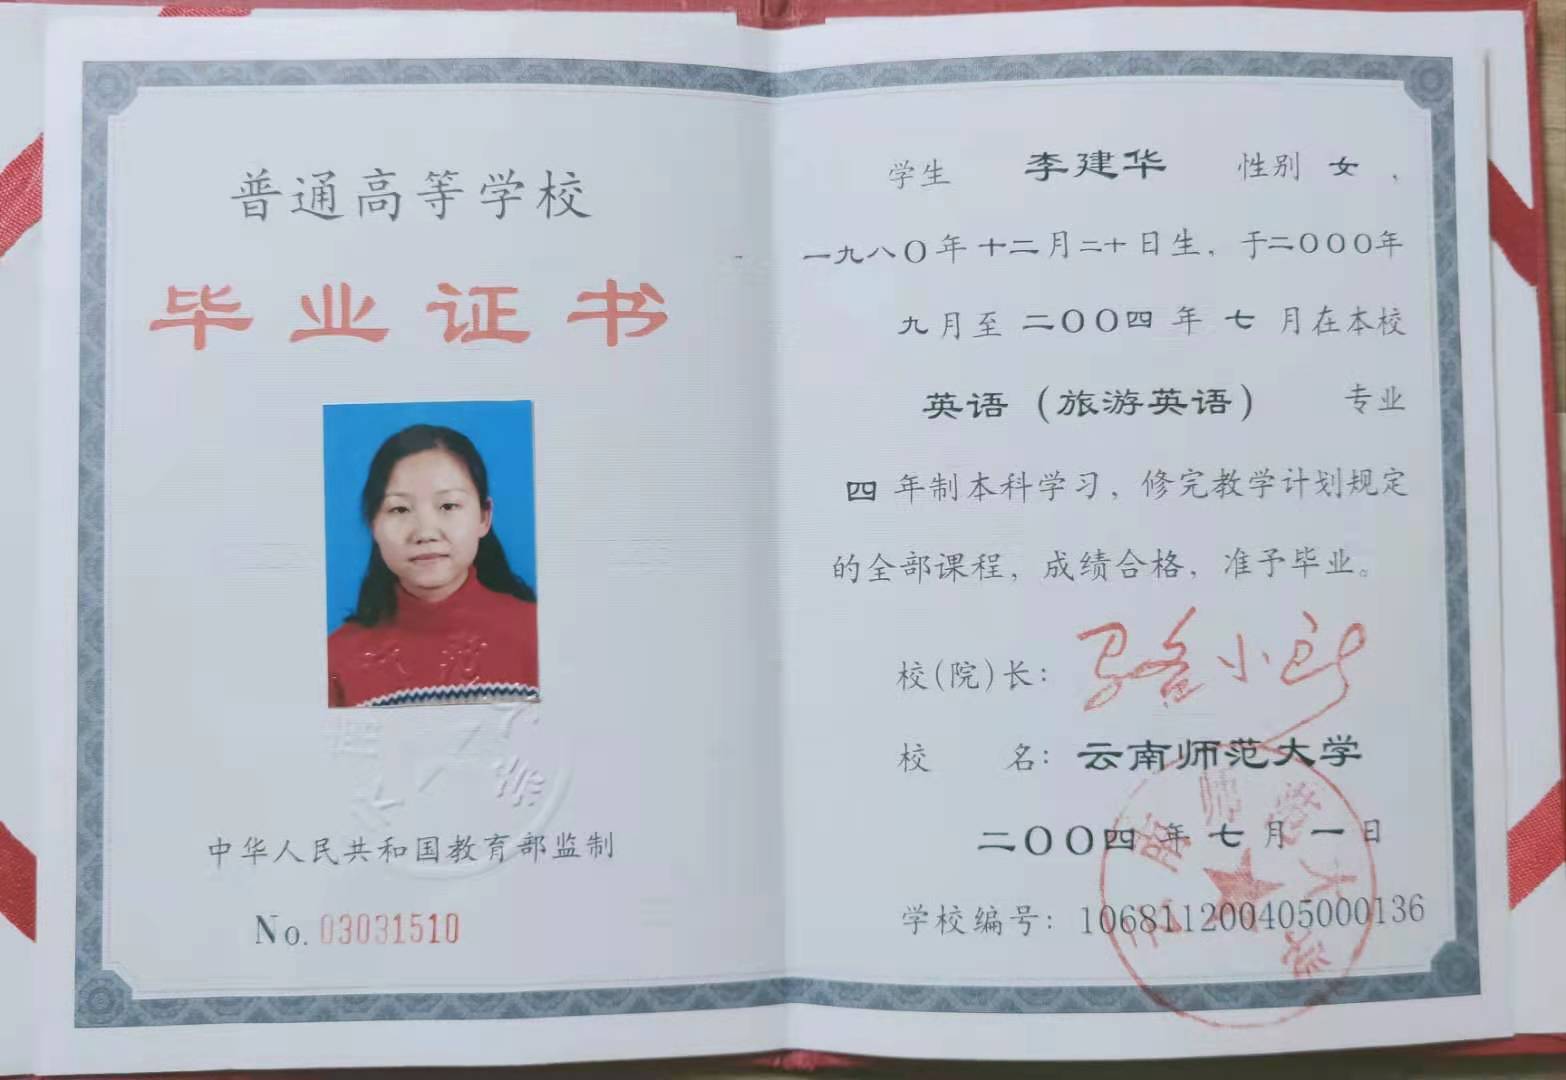 普通高等学校
毕业证书
中华人民共和国教育部监制
No. 03031510
学生 李建华 性别 女，
一九八〇年十二月二十日生，于二〇〇〇年
九月至二〇〇四年七月在本校
英语（旅游英语） 专业
四年制本科学习，修完教学计划规定
的全部课程，成绩合格，准予毕业。
校(院)长：
校 名：云南师范大学
二〇〇四年七月一日
学校编号：106811200405000136
云南师范大学